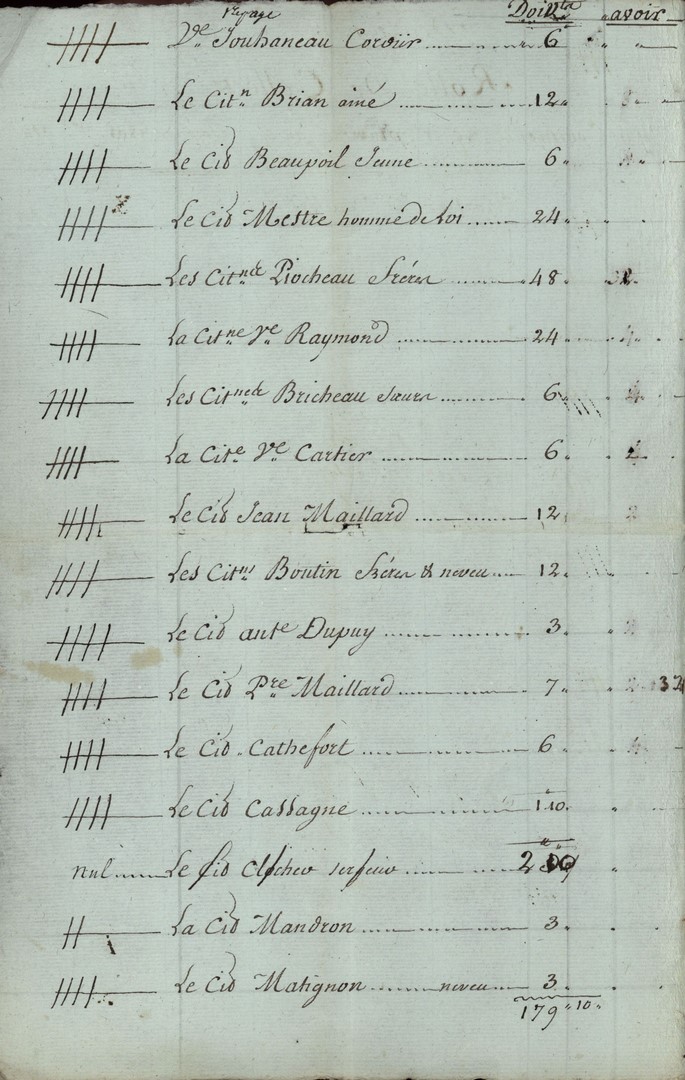 1er page Doiv.ent avoir
Ve Jouhaneau Corvür 6
Le Citn Brian ainé 12
Le Cid Beaupoil Jeune 6
Le Cid Mestre homme de Loi 24
Les Citnes Piocheau fréres 48
La Citne Ve Raymond 24
Les Citnes Bricheau sœurs 6
La Cite Ve Cartier 6
Le Cid Jean Maillard 12
Les Citns Boutin fréres & neveu 12
Le Cid ante Dupuy 3
Le Cid Pre Maillard 7
Le Cid Cathefort 6
Le Cid Cassagne 1 10
nul Le Cid 2
La Cid Mandron 3
Le Cid Matignon neveu 3
179 10